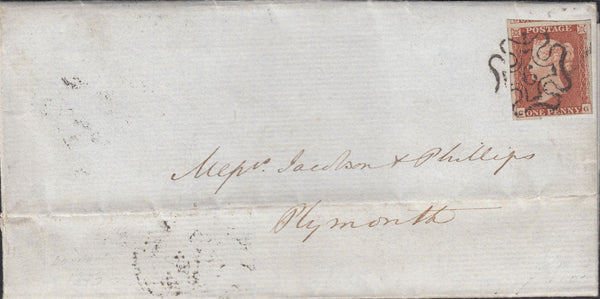 POSTAGE
ONE PENNY G
Messrs. Jacobson & Phillips
Plymouth